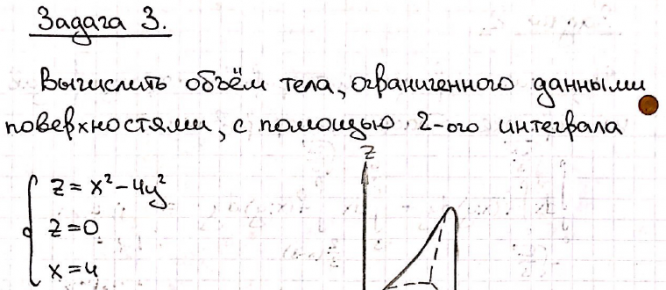 Задача 3.
Вычислить объём тела, ограниченного данными
поверхностями, с помощью 2-ого интеграла
z = x² - 4y²
z = 0
x = 4
z